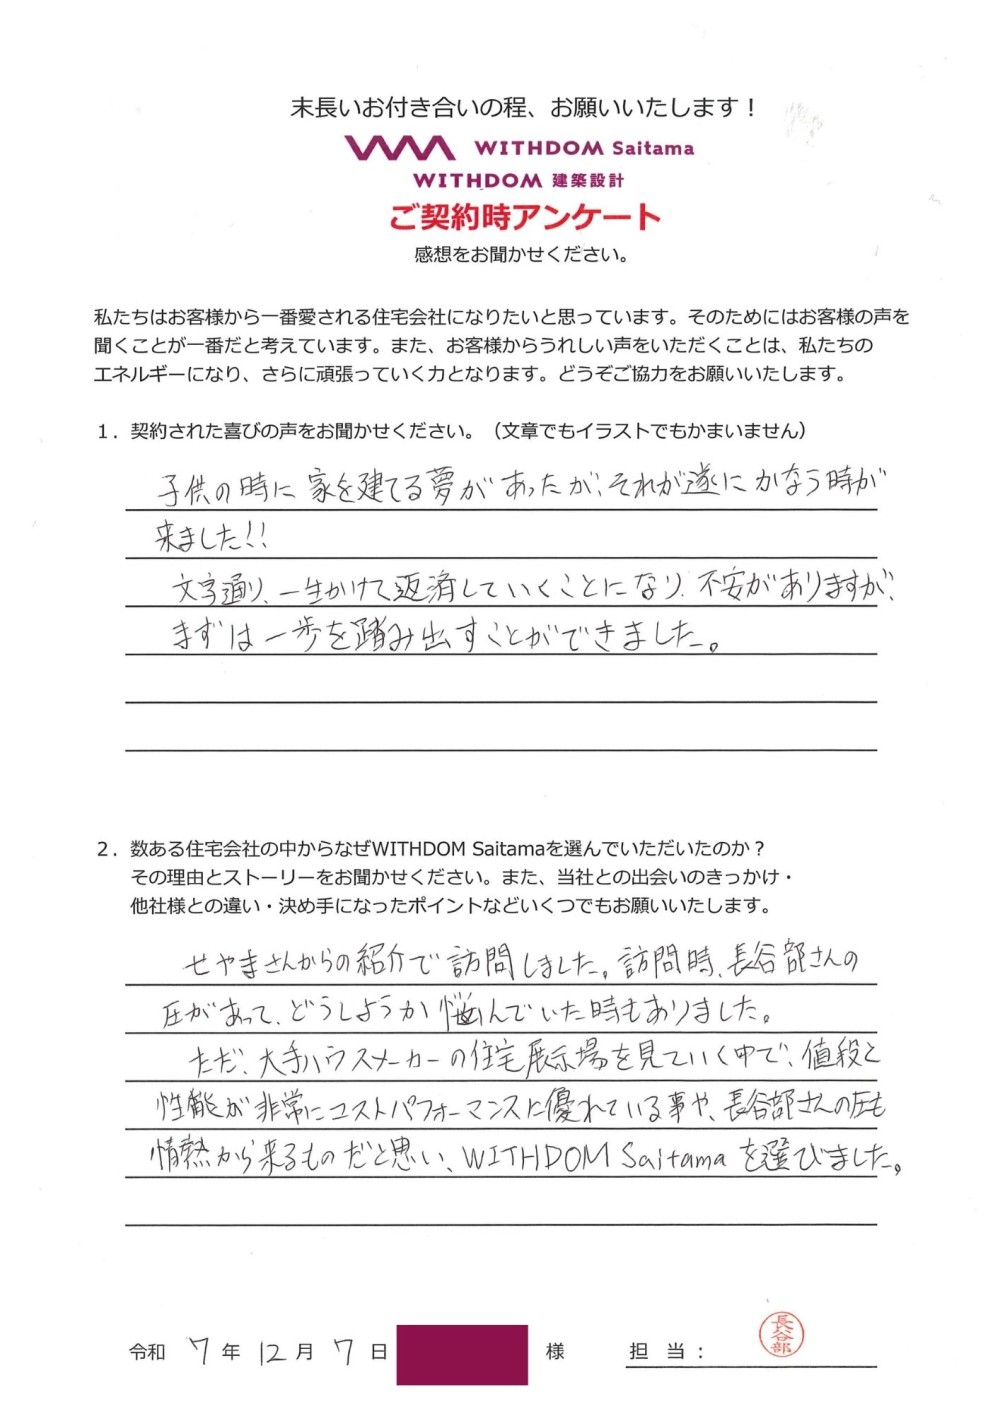 末長いお付き合いの程、お願いいたします！
WITHDOM Saitama
WITHDOM 建築設計
ご契約時アンケート
感想をお聞かせください。
私たちはお客様から一番愛される住宅会社になりたいと思っています。そのためにはお客様の声を
聞くことが一番だと考えています。また、お客様からうれしい声をいただくことは、私たちの
エネルギーになり、さらに頑張っていく力となります。どうぞご協力をお願いいたします。
１．契約された喜びの声をお聞かせください。（文章でもイラストでもかまいません）
子供の時に家を建てる夢があったが、それが遂にかなう時が
来ました!!
文字通り、一生かけて返済していくことになり、不安がありますが、
まずは一歩を踏み出すことができました。
２．数ある住宅会社の中からなぜWITHDOM Saitamaを選んでいただいたのか？
その理由とストーリーをお聞かせください。また、当社との出会いのきっかけ・
他社様との違い・決め手になったポイントなどいくつでもお願いいたします。
せやまさんからの紹介で訪問しました。訪問時、長谷部さんの
圧があって、どうしようか悩んでいた時もありました。
ただ、大手ハウスメーカーの住宅展示場を見ていく中で、値段と
性能が非常にコストパフォーマンスに優れている事や、長谷部さんの圧も
情熱から来るものだと思い、WITHDOM Saitamaを選びました。
令和 7 年 12 月 7 日 様 担 当 ：
長谷部